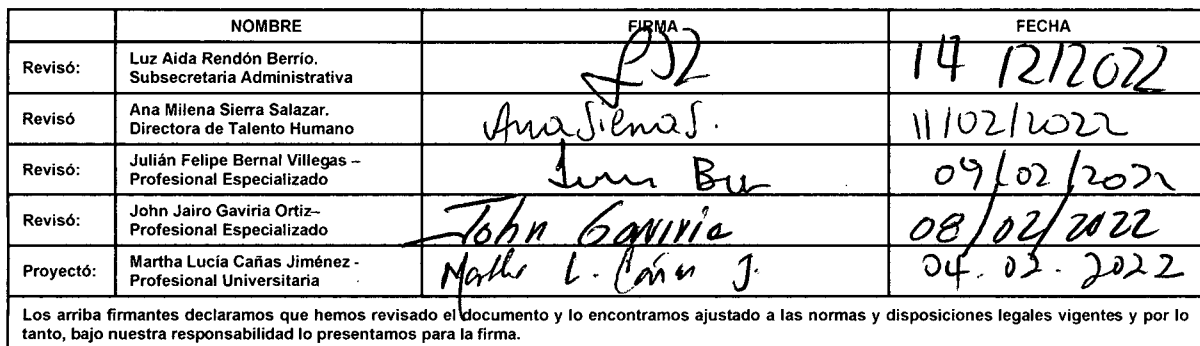 NOMBRE FIRMA FECHA
Revisó: Luz Aida Rendón Berrío.
Subsecretaria Administrativa
14 12/2022
Revisó Ana Milena Sierra Salazar.
Directora de Talento Humano
Ana Sierra S. 11/02/2022
Revisó: Julián Felipe Bernal Villegas –
Profesional Especializado
09/02/2022
Revisó: John Jairo Gaviria Ortiz–
Profesional Especializado
John Gaviria 08/02/2022
Proyectó: Martha Lucía Cañas Jiménez -
Profesional Universitaria
Martha L. Cañas J. 04.02.2022
Los arriba firmantes declaramos que hemos revisado el documento y lo encontramos ajustado a las normas y disposiciones legales vigentes y por lo
tanto, bajo nuestra responsabilidad lo presentamos para la firma.